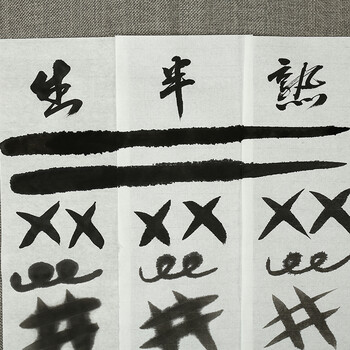 生 半 熟